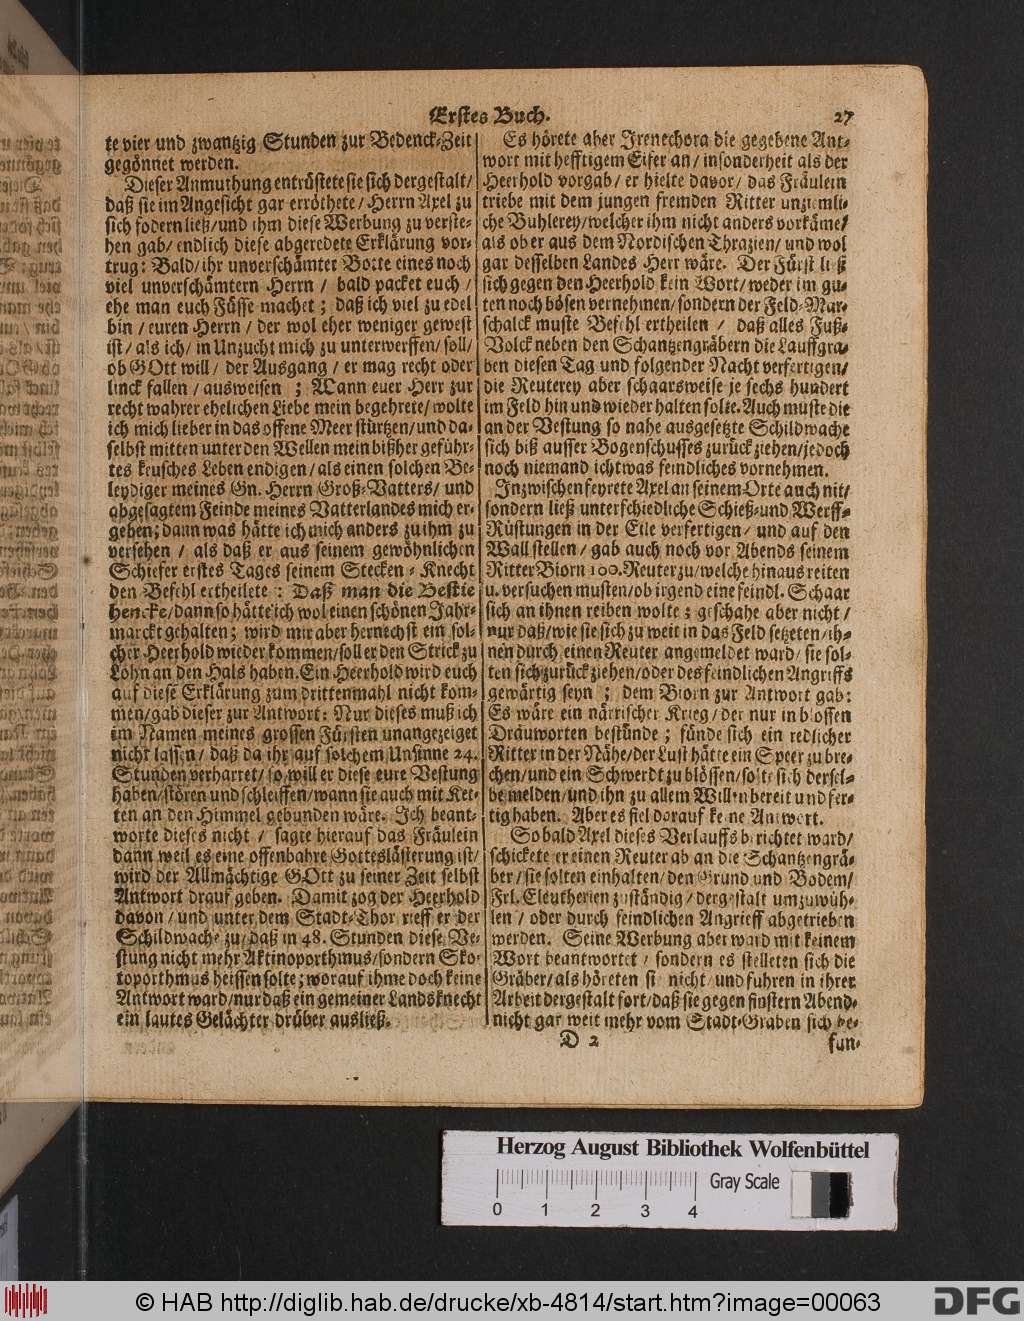 Erstes Buch. 27
te vier und zwantzig Stunden zur Bedenck-Zeit
gegönnet werden.
Dieser Anmuthung entrüstete sie sich dergestalt/
daß sie im Angesicht gar erröthete/ Herrn Axel zu
sich fodern ließ/ und ihm diese Werbung zu verste-
hen gab/ endlich diese abgeredete Erklärung vor-
trug: Bald/ ihr unverschämter Botte eines noch
viel unverschämtern Herrn / bald packet euch /
ehe man euch Füsse machet; daß ich viel zu edel
bin / euren Herrn / der wol eher weniger gewest
ist/ als ich/ in Unzucht mich zu unterwerffen/ soll/
ob GOtt will/ der Ausgang/ er mag recht oder
linck fallen / ausweisen ; Wann euer Herr zur
recht wahrer ehelichen Liebe mein begehrete/ wolte
ich mich lieber in das offene Meer stürtzen/ und da-
selbst mitten unter den Wellen mein bißher geführ-
tes keusches Leben endigen/ als einen solchen Be-
leydiger meines Gn. Herrn Groß-Vatters/ und
abgesagtem Feinde meines Vatterlandes mich er-
geben; dann was hätte ich mich anders zu ihm zu
versehen / als daß er aus seinem gewöhnlichen
Schiefer erstes Tages seinem Stecken-Knecht
den Befehl ertheilete : Daß man die Bestie
hencke/ dann so hätte ich wol einen schönen Jahr-
marckt gehalten; wird mir aber hernechst ein sol-
cher Heerhold wieder kommen/ soll er den Strick zu
Lohn an den Hals haben. Ein Heerhold wird euch
auf diese Erklärung zum drittenmahl nicht kom-
men/ gab dieser zur Antwort: Nur dieses muß ich
im Namen meines grossen Fürsten unangezeiget
nicht lassen/ daß da ihr auf solchem Unsinne 24.
Stunden verharret/ so will er diese eure Vestung
haben/ stören und schleiffen/ wann sie auch mit Ket-
ten an den Himmel gebunden wäre. Ich beant-
worte dieses nicht / sagte hierauf das Fräulein
dann weil es eine offenbahre Gotteslästerung ist/
wird der Allmächtige GOtt zu seiner Zeit selbst
Antwort drauf geben. Damit zog der Heerhold
davon/ und unter dem Stadt-Thor rieff er der
Schildwache zu/ daß in 48. Stunden diese Ve-
stung nicht mehr Aktinoporthmus/ sondern Sko-
toporthmus heissen solte; worauf ihme doch keine
Antwort ward/ nur daß ein gemeiner Landsknecht
ein lautes Gelächter drüber ausließ.
Es hörete aber Irenechora die gegebene Ant-
wort mit hefftigem Eifer an/ insonderheit als der
Heerhold vorgab/ er hielte davor/ das Fräulein
triebe mit dem jungen fremden Ritter unziemli-
che Buhlerey/ welcher ihm nicht anders vorkäme/
als ob er aus dem Nordischen Thrazien/ und wol
gar desselben Landes Herr wäre. Der Fürst ließ
sich gegen den Heerhold kein Wort/ weder im gu-
ten noch bösen vernehmen/ sondern der Feld-Mar-
schalck muste Befehl ertheilen / daß alles Fuß-
Volck neben den Schantzengräbern die Lauffgra-
ben diesen Tag und folgender Nacht verfertigen/
die Reuterey aber schaarsweise je sechs hundert
im Feld hin und wieder halten solte. Auch muste die
an der Vestung so nahe ausgesetzte Schildwache
sich biß ausser Bogenschusses zurück ziehen/ jedoch
noch niemand ichtwas feindliches vornehmen.
Inzwischen feyrete Axel an seinem Orte auch nit/
sondern ließ unterschiedliche Schieß- und Werff-
Rüstungen in der Eile verfertigen/ und auf den
Wall stellen/ gab auch noch vor Abends seinem
Ritter Biorn 100. Reuter zu/ welche hinaus reiten
u. versuchen musten/ ob irgend eine feindl. Schaar
sich an ihnen reiben wolte; geschahe aber nicht/
nur daß/ wie sie sich zu weit in das Feld setzeten/ ih-
nen durch einen Reuter angemeldet ward/ sie sol-
ten sich zurück ziehen/ oder des feindlichen Angriffs
gewärtig seyn ; dem Biorn zur Antwort gab:
Es wäre ein närrischer Krieg/ der nur in blossen
Dräuworten bestünde; fünde sich ein redlicher
Ritter in der Nähe/ der Lust hätte ein Speer zu bre-
chen/ und ein Schwerdt zu blössen/ solte sich dersel-
be melden/ und ihn zu allem Willen bereit und fer-
tig haben. Aber es fiel darauf keine Antwort.
So bald Axel dieses Verlauffs berichtet ward/
schickete er einen Reuter ab an die Schantzengrä-
ber/ sie solten einhalten/ den Grund und Bodem/
Frl. Eleutherien zuständig/ dergestalt umzuwüh-
len / oder durch feindlichen Angrieff abgetrieben
werden. Seine Werbung aber ward mit keinem
Wort beantwortet/ sondern es stelleten sich die
Gräber/ als höreten sie nicht/ und fuhren in ihrer
Arbeit dergestalt fort/ daß sie gegen finstern Abend
nicht gar weit mehr vom Stadt-Graben sich be-
D 2 fun-
Herzog August Bibliothek Wolfenbüttel
0 1 2 3 4 Gray Scale
© HAB http://diglib.hab.de/drucke/xb-4814/start.htm?image=00063
DFG